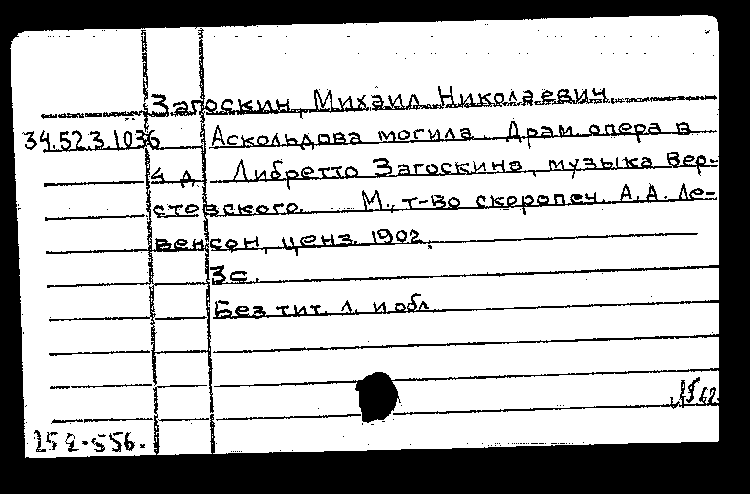 Загоскин, Михаил Николаевич.
34.52.3.1036 Аскольдова могила. Драм. опера в
4 д. Либретто Загоскина, музыка Вер-
стовского. М., т-во скоропеч. А.А. Ле-
венсон, ценз. 1902.
3с.
Без тит. л. и обл.
252-556.